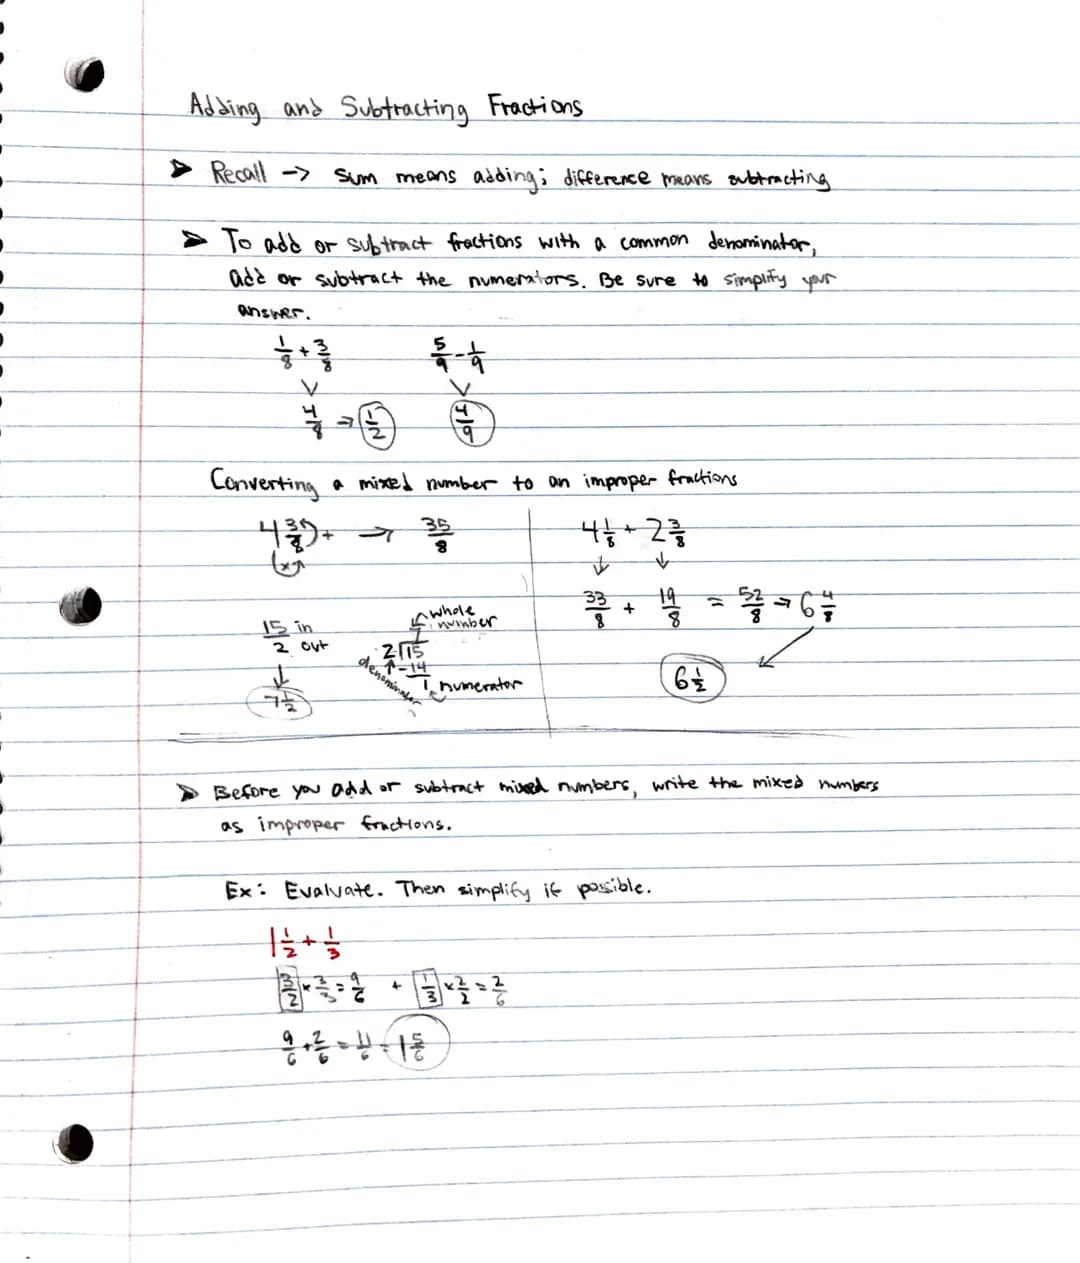 Adding and Subtracting Fractions
➤ Recall -> sum means adding; difference means subtracting
➤ To add or subtract fractions with a common denominator,
add or subtract the numerators. Be sure to simplify your
answer.
1/8 + 3/8    5/9 - 1/9
4/8 → 1/2    4/9
Converting a mixed number to an improper fractions
4 3/8 + x → 35/8
4 1/8 + 2 3/8
33/8 + 19/8 = 52/8 → 6 4/8
6 1/2
15/2 in out
7 1/2
whole
number
7
2√15
-14
1 numerator
denominator
➤ Before you add or subtract mixed numbers, write the mixed numbers
as improper fractions.
Ex: Evaluate. Then simplify if possible.
1 1/2 + 1/3
3/2 × 3/3 = 9/6 + 1/3 × 2/2 = 2/6
9/6 + 2/6 = 11/6 = 1 5/6